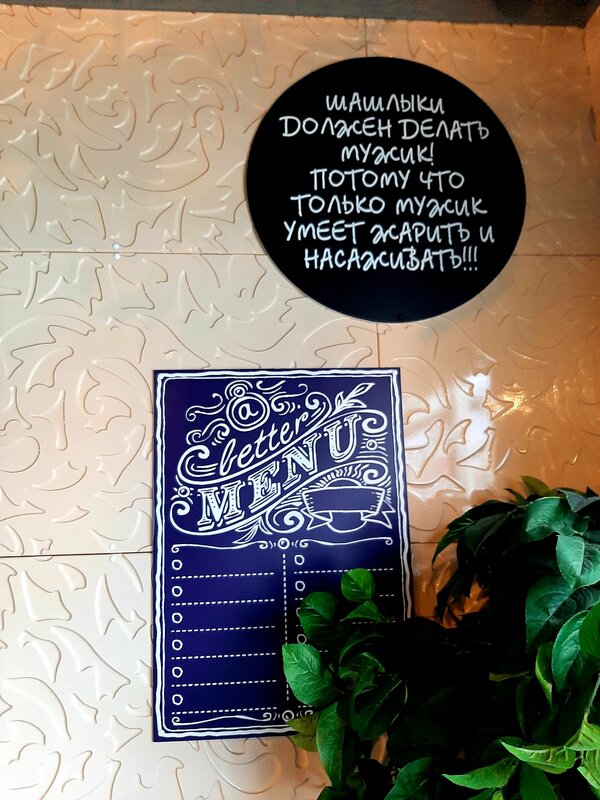 ШАШЛЫКИ
ДОЛЖЕН ДЕЛАТЬ
МУЖИК!
ПОТОМУ ЧТО
ТОЛЬКО МУЖИК
УМЕЕТ ЖАРИТЬ И
НАСАЖИВАТЬ!!!
a
better
MENU